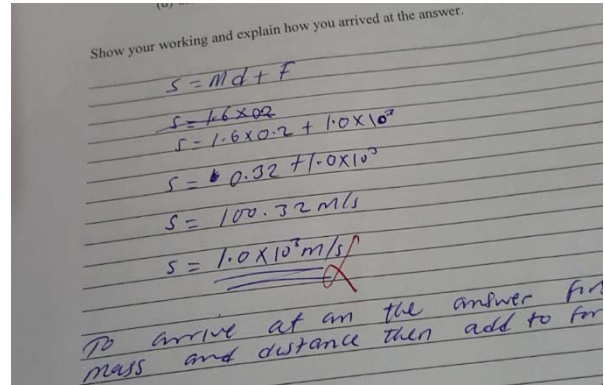 Show your working and explain how you arrived at the answer.
S = Md + F
S = 1.6 x 02
S = 1.6 x 0.2 + 1.0 x 10³
S = 0.32 + 1.0 x 10³
S = 100.32 m/s
S = 1.0 x 10³ m/s
To arrive at an the answer
mass and distance then add to